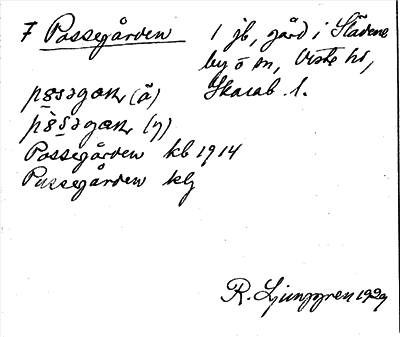 7 Possegården 1 jb, gård i Slädene
by o sn, Viste hd,
Skarab. l.
(ä)
(y)
Possegården kb 1914
Pussegården klj
R. Ljunggren 1929